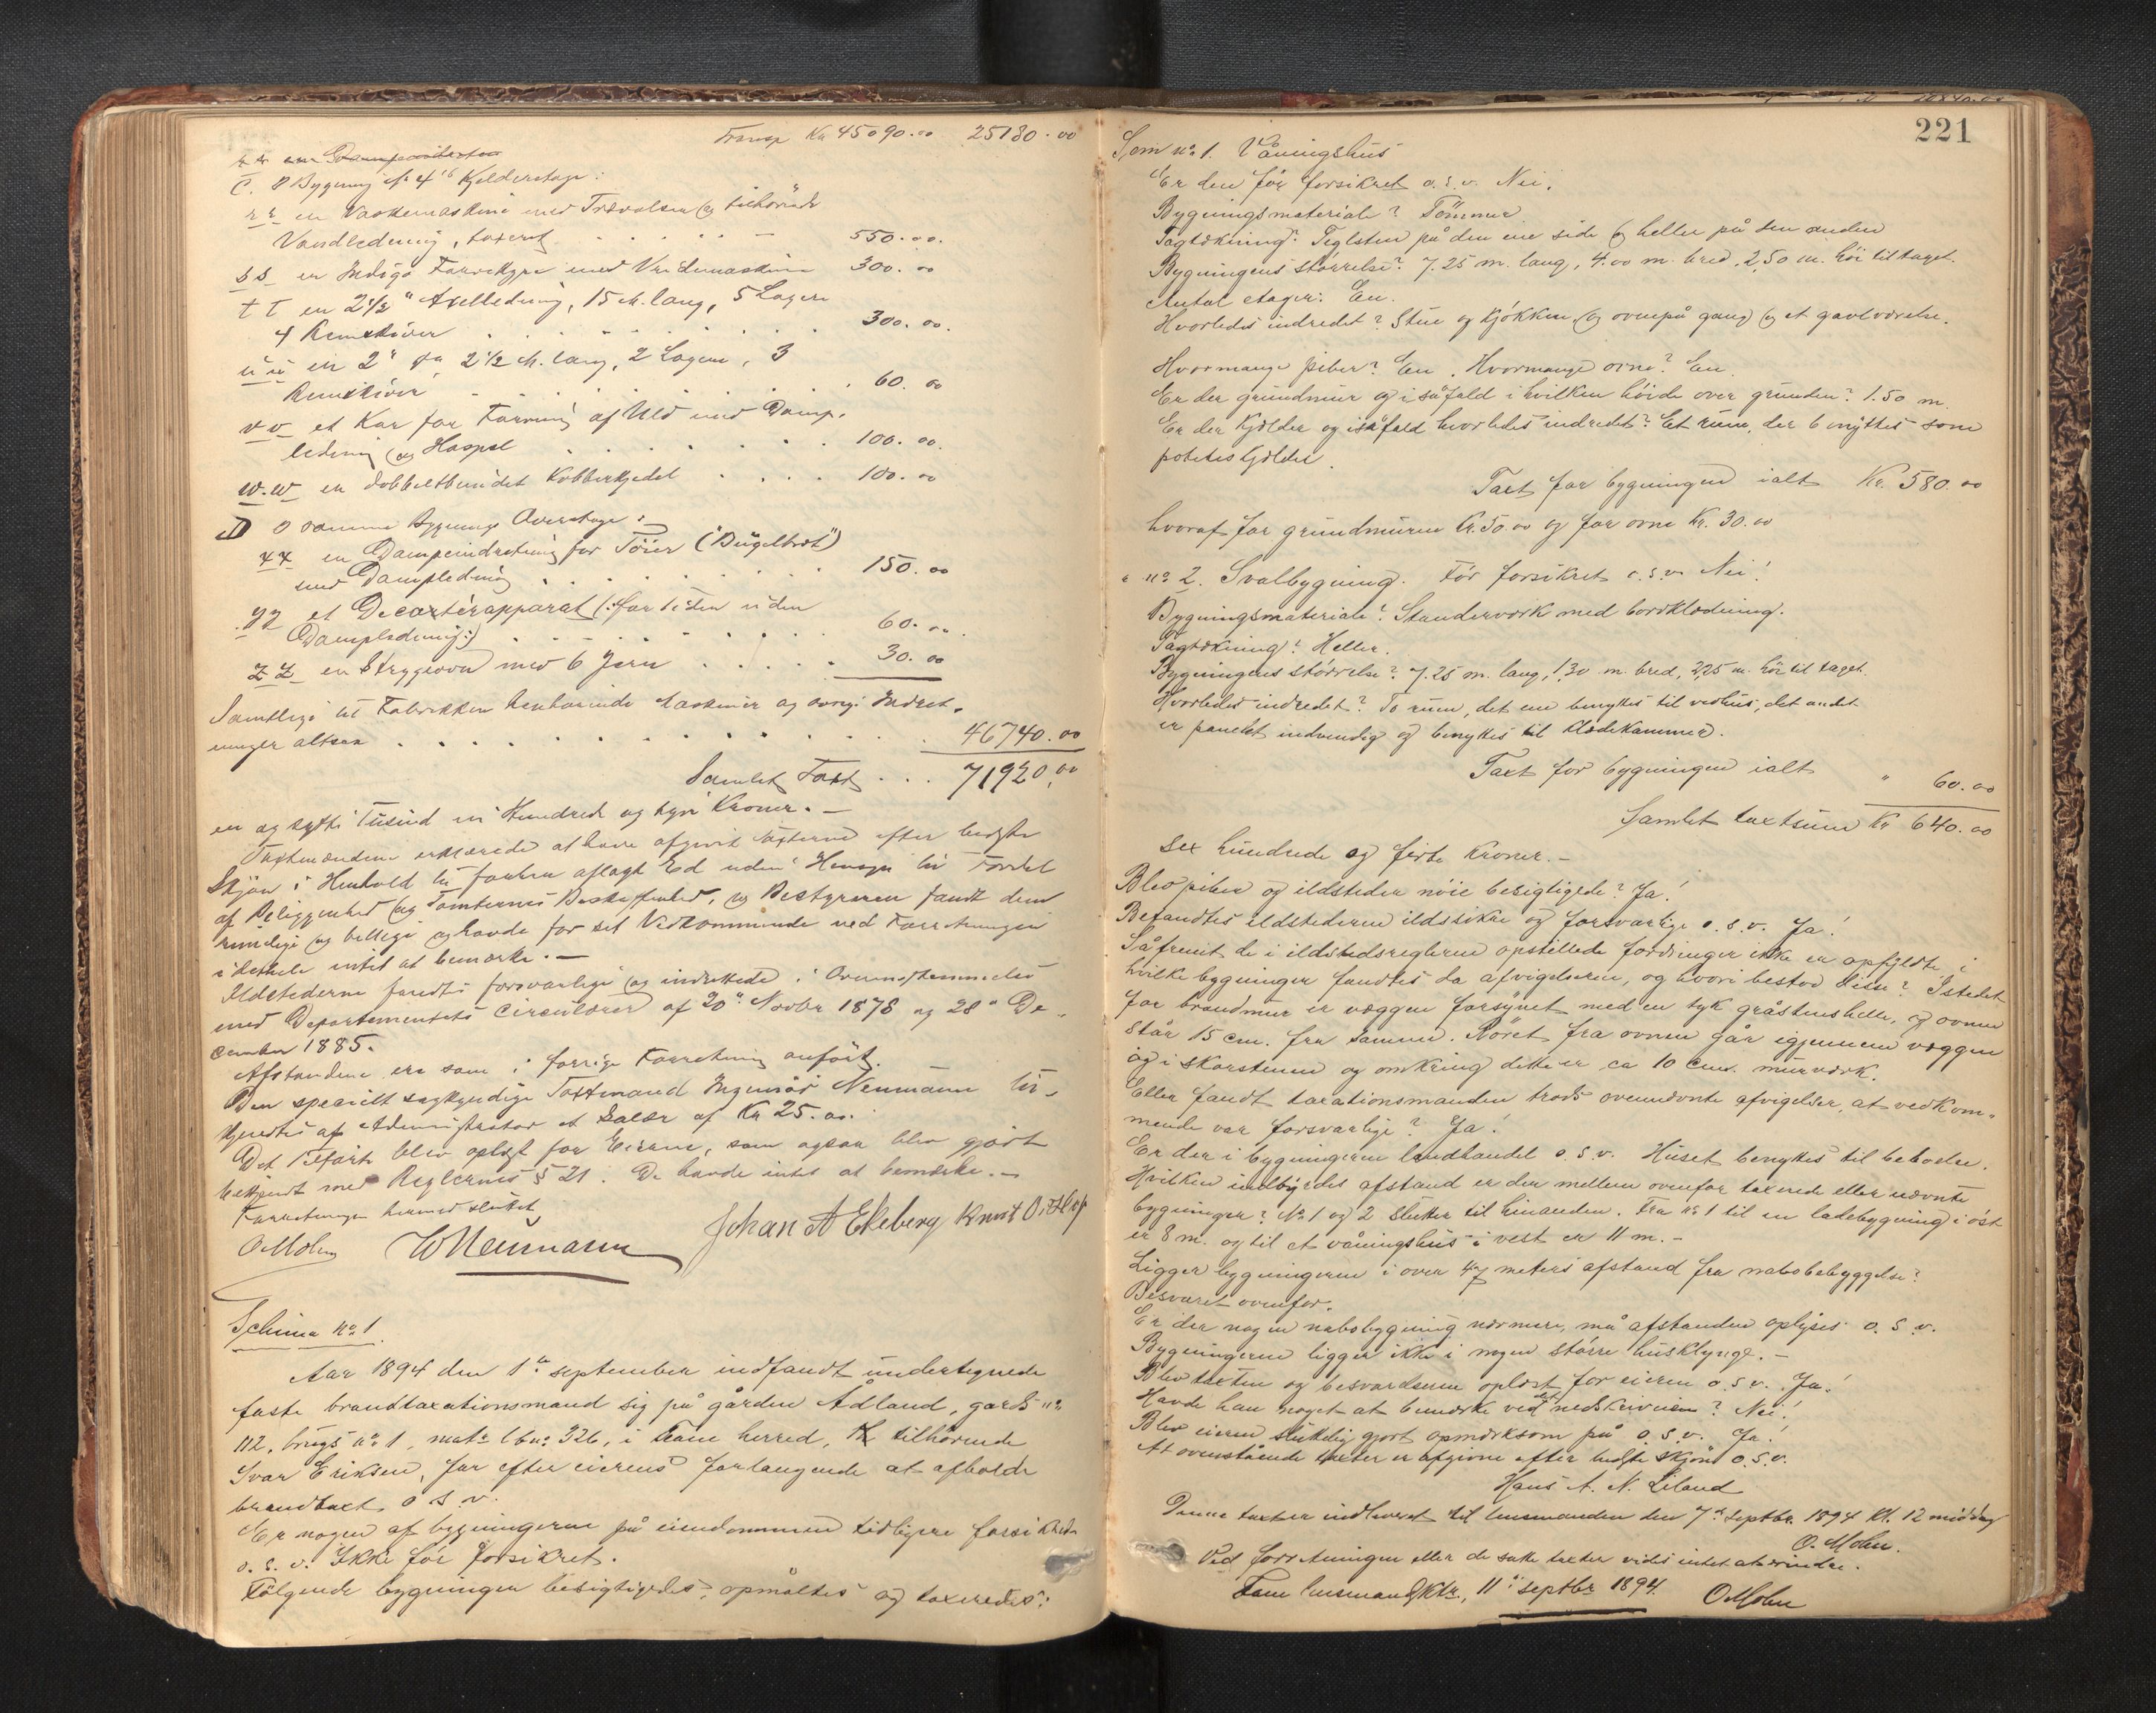 Transp Kr 45090.00 25180.00
C. I Bygning No 4's Kjelderetage:
r r en Vaskemaskine med Trævalser og tilhørende
Vandledning, taxeret . . . . . 550.00.
s s en Indigo Farvekype med Vridemaskine 300.00
t t en 2 1/2" Axelledning, 15 M. lang, 5 Lagere
4 Remskiver . . . . . . . 300.00.
ü ü en 2" do 2 1/2 M. lang, 2 Lagere, 3
Remskiver . . . . . . . 60.00
v v et Kar for Farvning af Uld med Damp-
ledning og Haspel . . . . . 100.00.
w.w en dobbeltbundet Kobberkjedel . . . . 100.00
D I samme Bygnings Overetage:
x x en Dampindretning for Tøier ("Bügelbret")
med Dampledning . . . . . . 150.00
y y et Decartérapparat (:for tiden uden
Dampledning:) . . . . . . . 60.00.
z z en Strygeovn med 6 Jern . . . . 30.00
Samtlige til Fabrikken henhørende Maskiner og øvrige Indret-
ninger altsaa . . . . . . . . . 46740.00
Samlet Taxt . . . 71920.00
en og sytti Tusind ni Hundrede og tyve Kroner.—
Taxtmændene erklærede at have afgivet Taxterne efter bedste
Skjøn i Henhold til forhen aflagt Ed uden Hensyn til Fordel
af Beliggenhed og Tomternes Beskaffenhed, og Bestyreren fandt dem
rimelige og billige og havde for sit Vedkommende ved Forretningen
i det hele intet at bemærke.—
Ildstederne fandtes forsvarlige og indrettede i Overensstemmelse
med Departementets Circulærer af 20de Novbr 1878 og 28de De-
cember 1885.
Afstandene ere som i forrige Forretning anført.
Den specielt sagkyndige Taxtmand Ingeniør Neumann til-
kjendtes af Administrator et Salær af Kr 25.00.
Det Tilførte blev oplæst for Eierne, som ogsaa blev gjort
bekjendt med Reglernes § 21. De havde intet at bemærke.—
Forretningen hermed sluttet
O Mohn W Neumann Johan A Ekeberg Knut O.
Schema No 1.
Aar 1894 den 1ste september indfandt undertegnede
faste brandtaxationsmand sig på gården Ådland, gards No
112, brugs No 1, matr. lbno. 326, i Fane herred, tilhørende
Ivar Eriksen, for efter eierens forlangende at afholde
brandtaxt o s v.
Er nogen af bygningerne på eiendommen tidligere forsikret
o. s. v. Ikke før forsikret.
Følgende bygninger besigtigedes, opmåltes og taxeredes:
221
Som No 1. Våningshus
Er den før forsikret o. s. v. Nei.
Bygningsmateriale? Tømmer.
Tagtækning: Teglsten på den ene side og heller på den anden
Bygningens størrelse? 7.25 m. lang, 4.00 m. bred, 2,50 m. høi til taget.
Antal etager: En.
Hvorledes indredet? Stue og kjøkken, og ovenpå gang og et gavlværelse.
Hvormange piber? En. Hvormange ovne? En.
Er der grundmur og i så fald i hvilken høide over grunden? 1.50 m.
Er der kjelder og i så fald hvorledes indredet? Et rum, der benyttes som
poteteskjelder.
Taxt for bygningen ialt Kr. 580.00
hvoraf for grundmuren Kr. 50.00 og for ovne Kr. 30.00
" No 2. Svalbygning. Før forsikret o. s. v. Nei!
Bygningsmateriale? Standerværk med bordklædning.
Tagtækning? Heller.
Bygningens størrelse? 7.25 m. lang, 1,30 m. bred, 2,25 m. høi til taget.
Hvorledes indredet? To rum, det ene benyttes til vedhus, det andet
er panelet indvendig og benyttes til klædekammer.
Taxt for bygningen ialt " 60.00
Samlet taxtsum Kr 640.00
sex hundrede og firti kroner.—
Blev piber og ildsteder nøie besigtigede? Ja!
Befandtes ildstederne ildsikre og forsvarlige o. s. v. Ja!
Såfremt de i ildstedsreglerne opstillede fordringer ikke er opfyldte, i
hvilke bygninger fandtes da afvigelserne, og hvori bestod disse? Istedet
for brandmur er væggen forsynet med en tyk gråstenshelle, og ovnen
står 15 cm. fra samme. Røret fra ovnen går igjennem væggen
og i skorstenen og omkring dette er ca 10 cm. murværk.
Eller fandt taxationsmanden trods ovennævnte afvigelser, at vedkom-
mende var forsvarlige? Ja!
Er der i bygningerne landhandel o. s. v. Huset benyttes til beboelse.
Hvilken indbyrdes afstand er der mellem ovenfor taxerede eller nævnte
bygninger? No 1 og 2 slutter til hinanden. Fra No 1 til en ladebygning i øst
er 8 m. og til et våningshus i vest er 11 m.—
Ligger bygningerne i over 47 meters afstand fra nabobebyggelse?
Besvaret ovenfor.
Er der nogen nabobygning nærmere, må afstanden oplyses o. s. v.
Bygningerne ligger ikke i nogen større husklynge.—
Blev taxten og besvarelserne oplæst for eieren o. s. v. Ja!
Havde han noget at bemærke ved det nedskrevne? Nei!
Blev eieren skikkelig gjort opmærksom på o. s. v. Ja!
At ovenstående taxter er afgivne efter bedste skjøn o. s. v.
Hans A. N. Liland
Denne taxt er indleveret til lensmanden den 7de Septbr. 1894 kl. 12 middag
O. Mohn.
Ved forretningen eller de satte taxter vides intet at erindre.
Fane lensmandsktr., 11te septbr 1894. O Mohn